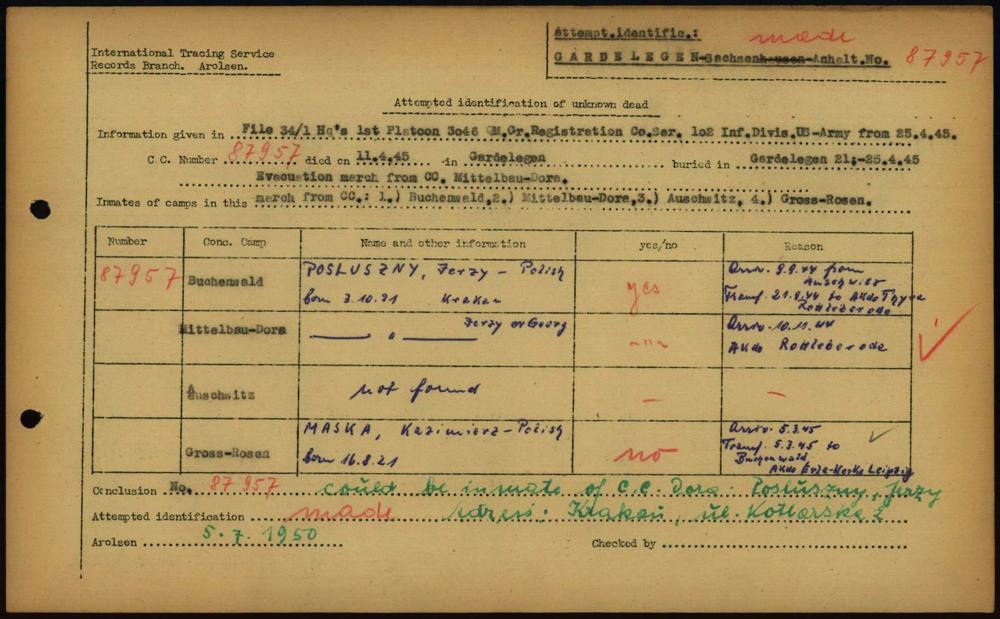 International Tracing Service
Records Branch. Arolsen.
Attempt.identific.: made
GARDELEGEN-Sachsenhausen-Anhalt.No. 87957
Attempted identification of unknown dead
Information given in File 34/1 Hq's 1st Platoon 3046 QM.Gr.Registration Co.Ser. 1o2 Inf.Divis.US-Army from 25.4.45.
C.C. Number 87957 died on 11.4.45 in Gardelegen buried in Gardelegen 21.-25.4.45
Evacuation march from CC. Mittelbau-Dora.
Inmates of camps in this march from CC.: 1.) Buchenwald,2.) Mittelbau-Dora,3.) Auschwitz, 4.) Gross-Rosen.
Number Conc. Camp Name and other information yes/no Reason
87957 Buchenwald POSLUSZNY, Jerzy - Polish yes Arriv. 9.9.44 from Auschwitz
born 3.10.21 Krakau Transf. 21.9.44 to AKdo Thyra
Rottleberode
Mittelbau-Dora — " — Jerzy or Georg -"- Arriv. 10.11.44
AKdo Rottleberode
Auschwitz not found - -
Gross-Rosen MASKA, Kazimierz - Polish no Arriv. 5.3.45
born 16.8.21 Transf. 5.3.45 to
Buchenwald
AKdo Erla-Werke Leipzig
Conclusion No. 87957 could be inmate of C.C Dora: Posłuszny, Jerzy
Attempted identification made Adress: Krakau, ul. Kotlarska 2
Arolsen 5.7.1950 Checked by